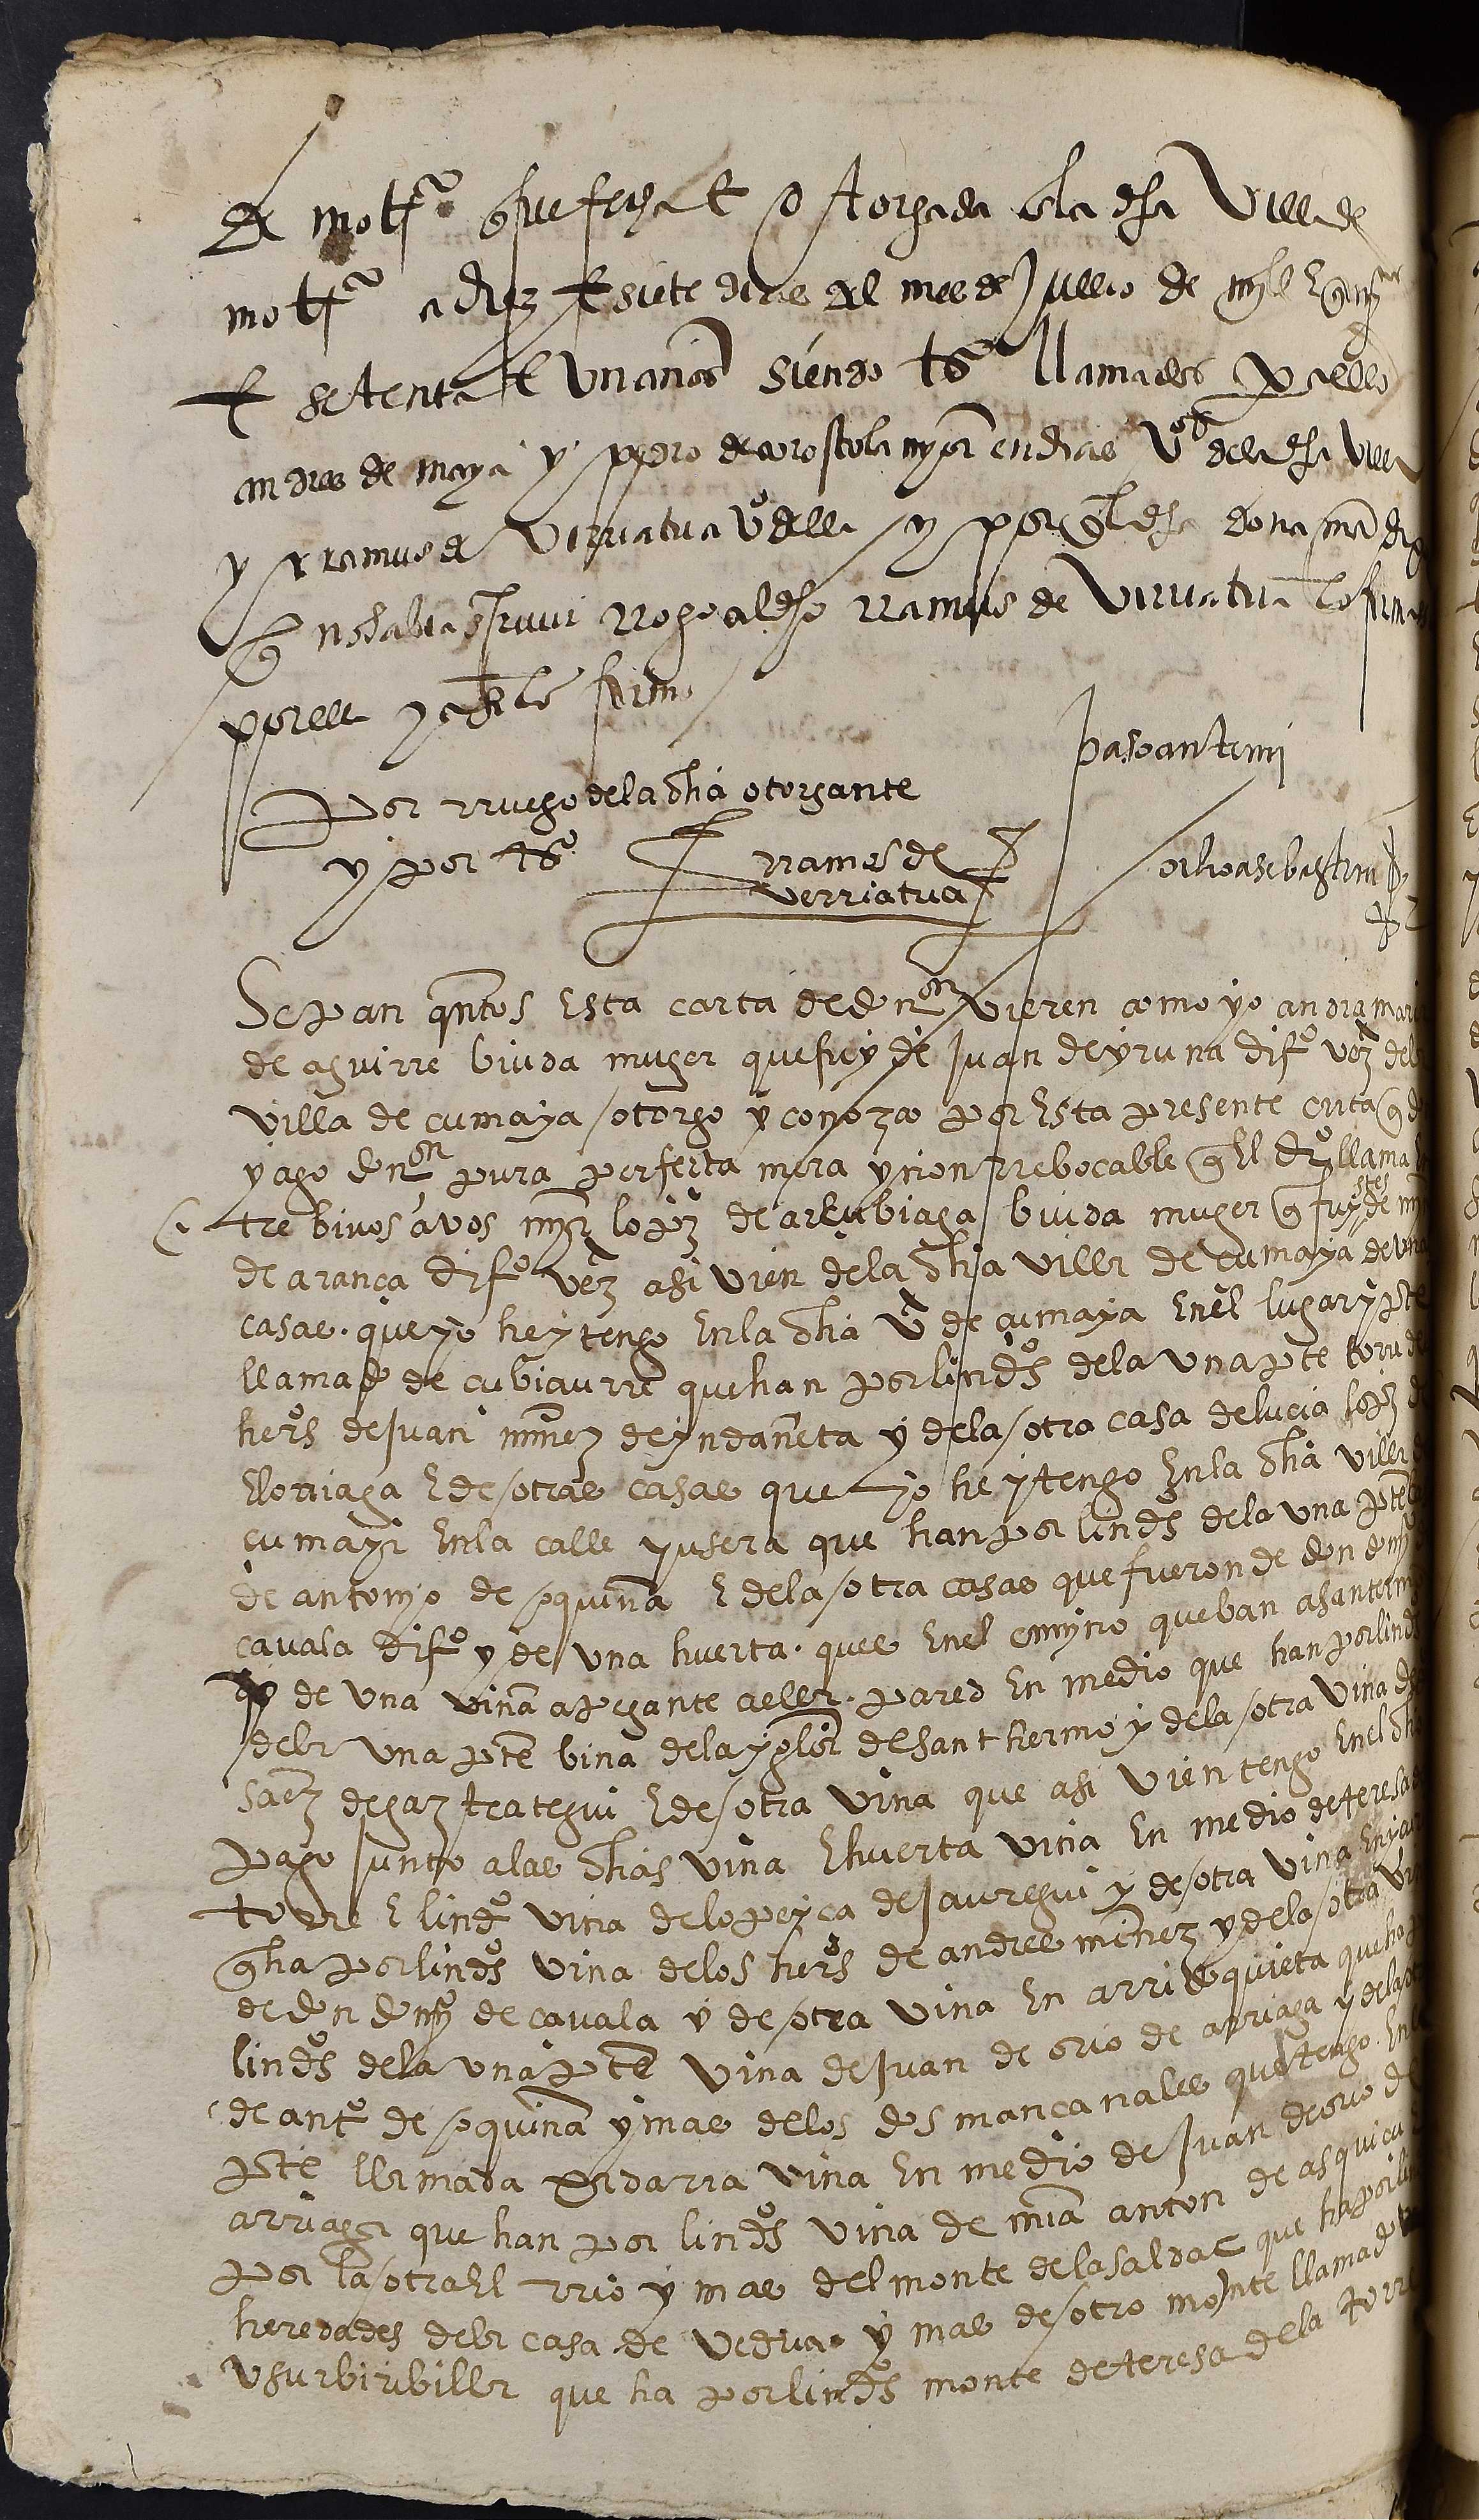 de motr̃ q̃ fue fecha E otorgada en la dha Villa de
motr̃ a diez E siete dias del mes de Jullio de mjll E qujs
E setenta E Un años siendo tsº llamados para ello
andres de maya y pedro de arostola mayor en dias vºs de la dha villa
y rramus de Verriatua vº della y por q̃ la dha dona maria dixo
q̃ no sabia escrivir rrogo al dho rramus de Verriatua lo firmase
por ella y asi lo firmo
paso ante mi
Por rruego dela dha otorgante
y por tsº rramus de
verriatua
ochoa sebastian
Sepan qntos Esta carta de don.on vieren como yo andra maria
de aguirre biuda muger que fuy de Juan de yruna difº vez.o dela
villa de cumaya otorgo y conozco por Esta presente carta q̃ do
y ago don.on pura perfecta mera y non rrebocable q̃ El drº llama En
tre bivos a vos mar lopz de arcubiaga biuda muger q̃ fuystes de
de arança difº vezº asi vien dela dha villa de cumaya de unas
casas que yo he y tengo En la dha vª de cumaya En el lugar y pte
llamado de cubiaurre que han por lindºs dela una pte torre de
herºs de Juan mñez de yndaneta y dela otra casa de lucia lopz de
Elorriaga E de otras casas que yo he y tengo En la dha villa de
cumaya En la calle yusera que han por lindºs dela una pte
de antonjo de oquina E dela otra casas que fueron de don domjº
cavala difº y de una huerta que es En el camjno que ban a santermo
de una vina apegante a ella pared En medio que han por lindºs
dela una pte bina dela yglesia de sant hermo y dela otra vina de
saez de gaztategui E de otra vina que asi vien tengo En el dho
pago Junto a las dhas vina E huerta vina En medio de teresa de
torre E lindº vina de lopeyça de Jauregui y de otra vina En
q̃ ha por lindºs vina delos herºs de andres mñez y dela otra vina
de don domjº de cavala y de otra vina En arri quieta que ha por
lindºs dela una pte vina de Juan de orio de arriaga y dela otra
de antº de oquina y mas delos dos mançanales que tengo En la
pte llamada ardarra vina En medio de Juan de orio de
arriaga que han por lindºs vina de mja anton de asquiçu
por la otra El rrio y mas del monte de la saldac que ha por lindºs
heredades dela casa de vedua y mas de otro monte llamado
usurbiribilla que ha por lindºs monte de teresa de la torre